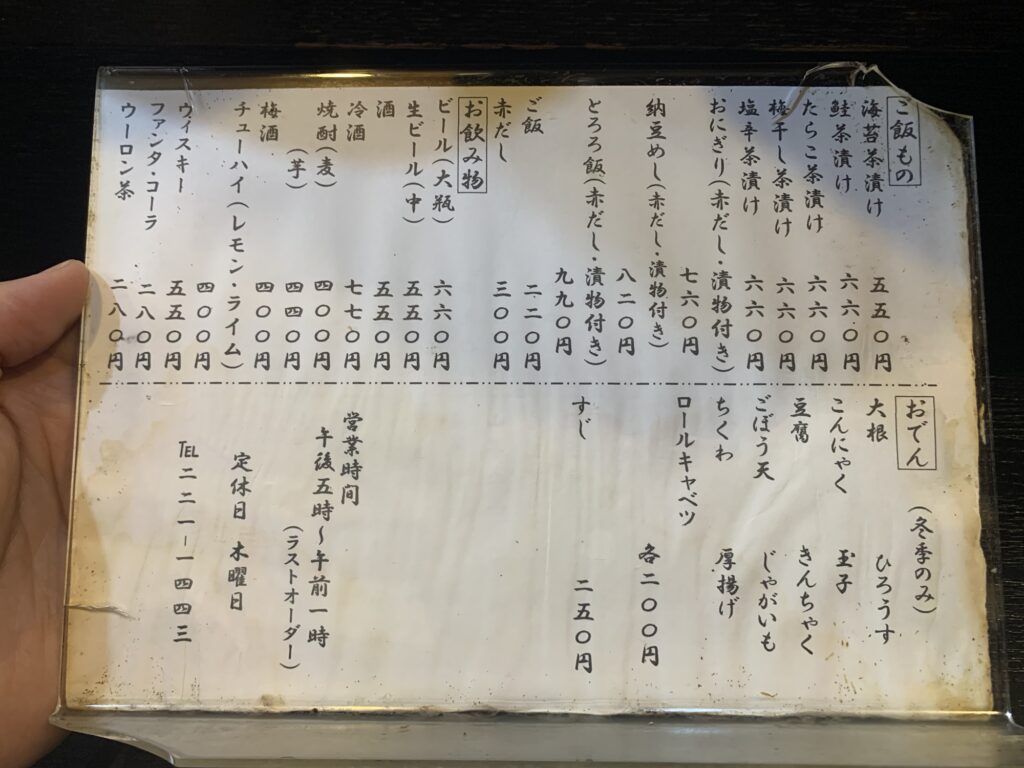 ご飯もの
海苔茶漬け 五五〇円
鮭茶漬け 六六〇円
たらこ茶漬け 六六〇円
梅干し茶漬け 六六〇円
塩辛茶漬け 六六〇円
おにぎり(赤だし・漬物付き)
七六〇円
納豆めし(赤だし・漬物付き)
八二〇円
とろろ飯(赤だし・漬物付き)
九九〇円
ご飯 二二〇円
赤だし 三〇〇円
お飲み物
ビール(大瓶) 六六〇円
生ビール(中) 五五〇円
酒 五五〇円
冷酒 七七〇円
焼酎(麦) 四〇〇円
(芋) 四四〇円
梅酒 四〇〇円
チューハイ(レモン・ライム)
四〇〇円
ウィスキー 五五〇円
ファンタ・コーラ 二八〇円
ウーロン茶 二八〇円
おでん (冬季のみ)
大根 ひろうす
こんにゃく 玉子
豆腐 きんちゃく
ごぼう天 じゃがいも
ちくわ 厚揚げ
ロールキャベツ
各二〇〇円
すじ 二五〇円
営業時間
午後五時〜午前一時
(ラストオーダー)
定休日 木曜日
℡ 二二一-一四四三